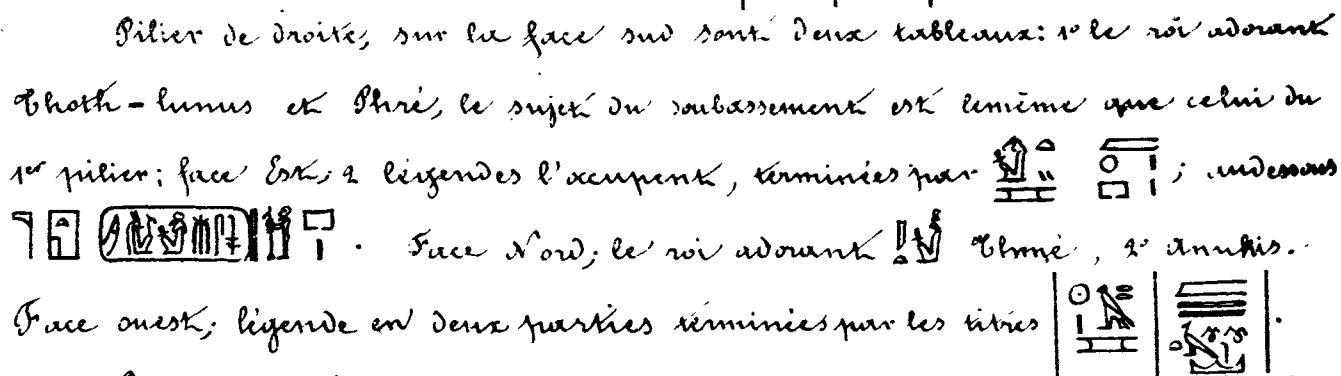 Pilier de droite, sur la face sud sont deux tableaux: 1º le roi adorant
Thoth-lunus et Phré, le sujet du soubassement est le même que celui du
1er pilier; face Est, 2 légendes l'occupent, terminées par ; audessous
. Face Nord; le roi adorant Thmé, 2º Anukis.
Face ouest; légende en deux parties terminées par les titres .